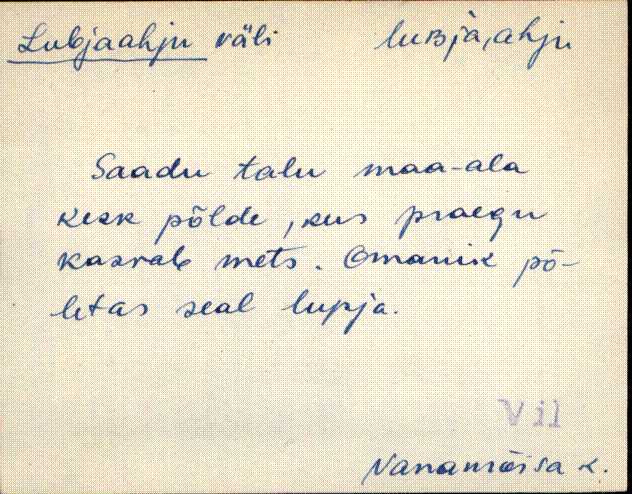 Lubjaahju väli luʙja,ahju
Saadu talu maa-ala
kesk põlde, kus praegu
kasvab mets. Omanik põ-
letas seal lupja.
Vil
Vanamõisa k.